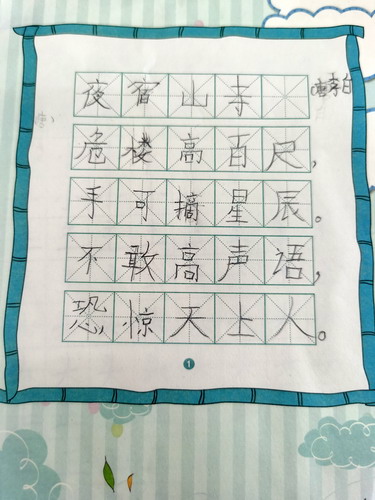 夜宿山寺 唐李白
危楼高百尺，
手可摘星辰。
不敢高声语，
恐惊天上人。
1